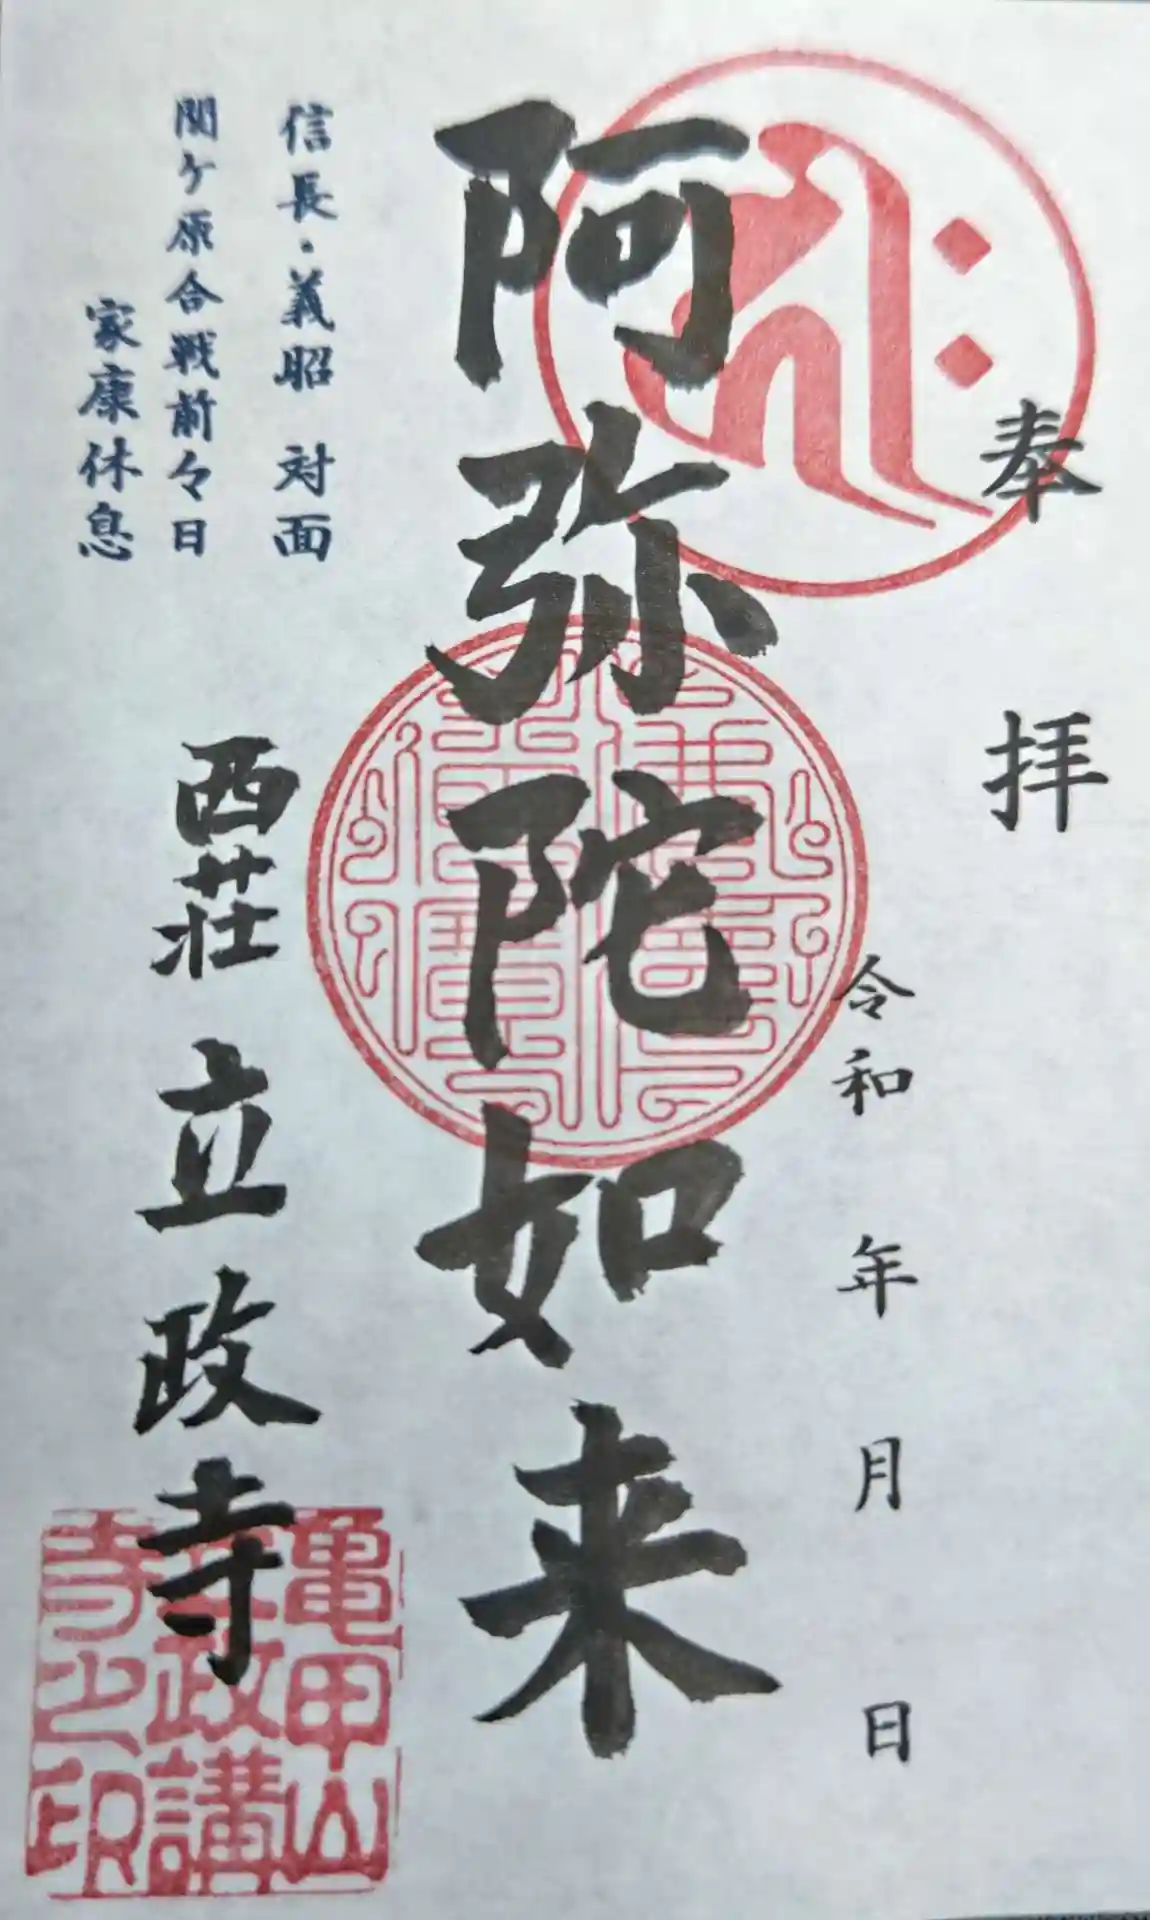 奉拝
令和 年 月 日
阿弥陀如来
信長・義昭 対面
関ケ原合戦前々日
家康休息
西荘 立政寺
亀甲山
立政講
寺之印